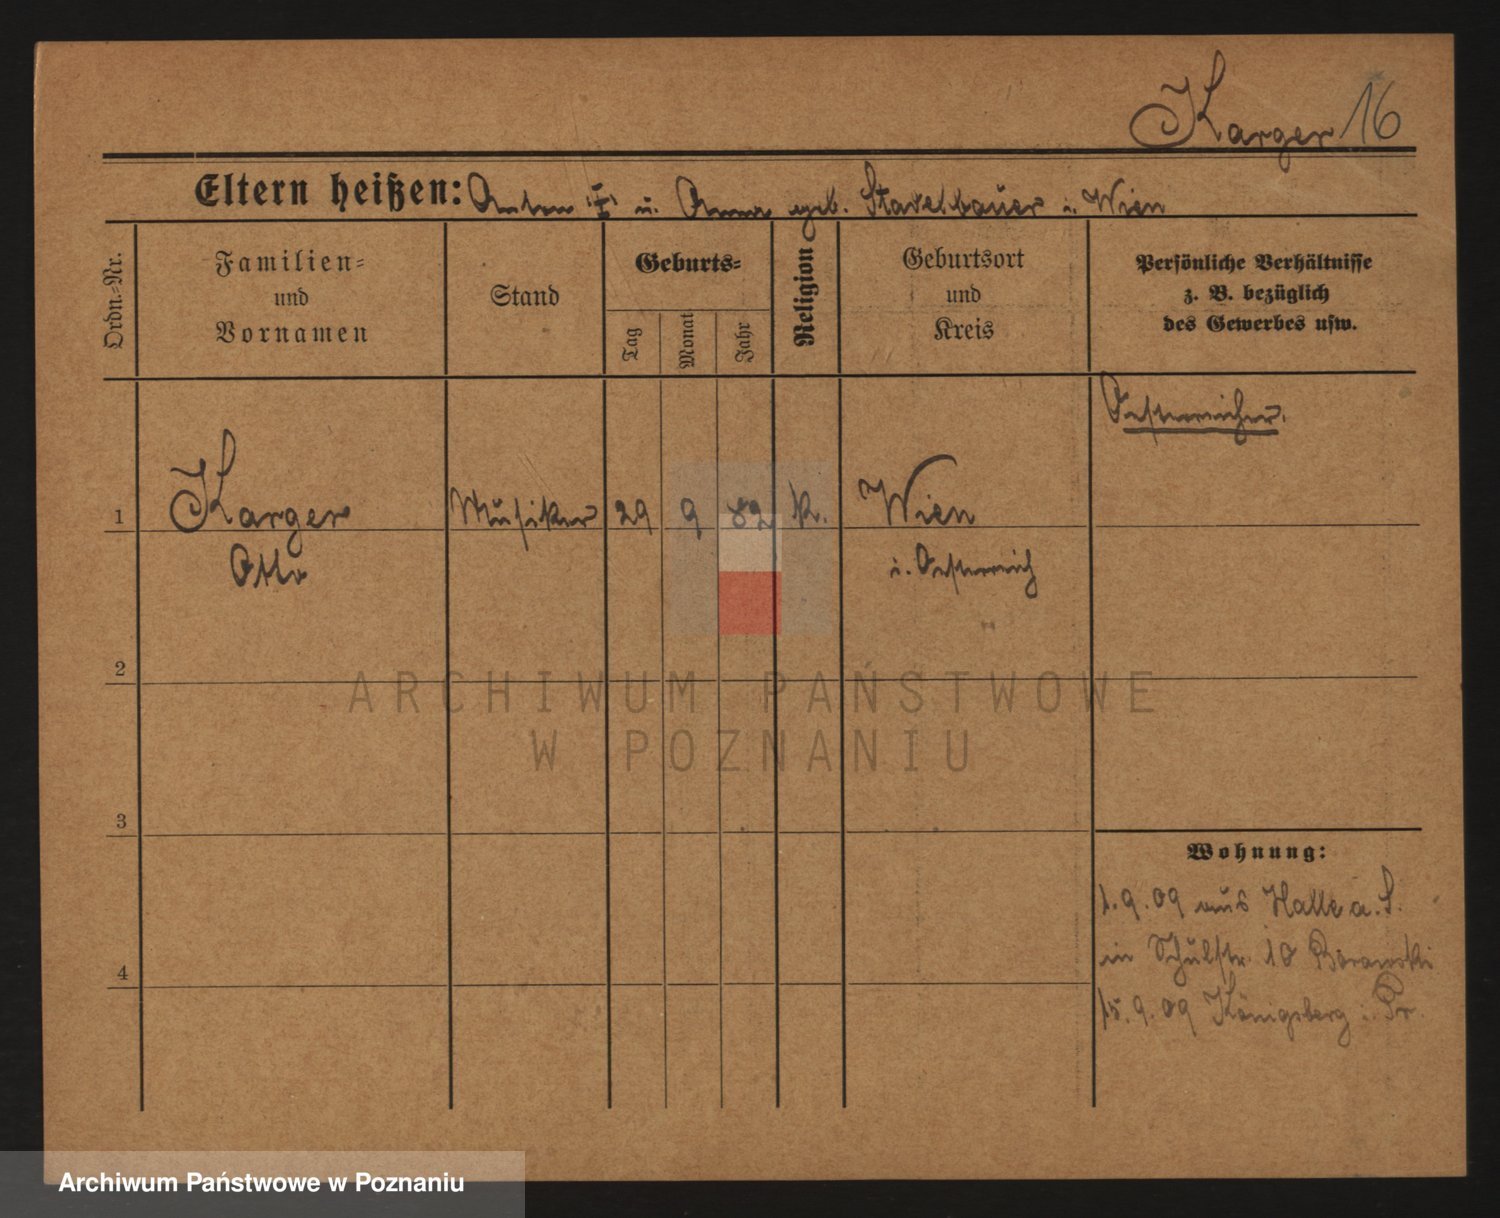 Karger 16
Eltern heißen: Anton u. Anna geb. i. Wien
Ordn.-Nr.
Familien-
und
Vornamen
Stand
Geburts-
Tag
Monat
Jahr
Religion
Geburtsort
und
Kreis
Persönliche Verhältnisse
z. B. bezüglich
des Gewerbes usw.
Oesterreicher.
1 Karger Musiker 29 9 82 k. Wien
Otto i. Oesterreich
2
ARCHIWUM PAŃSTWOWE
W POZNANIU
3
Wohnung:
1.9.09 aus Halle a. S.
in Schulstr. 10 Baranski
4
15.9.09 Königsberg i. Pr.
Archiwum Państwowe w Poznaniu